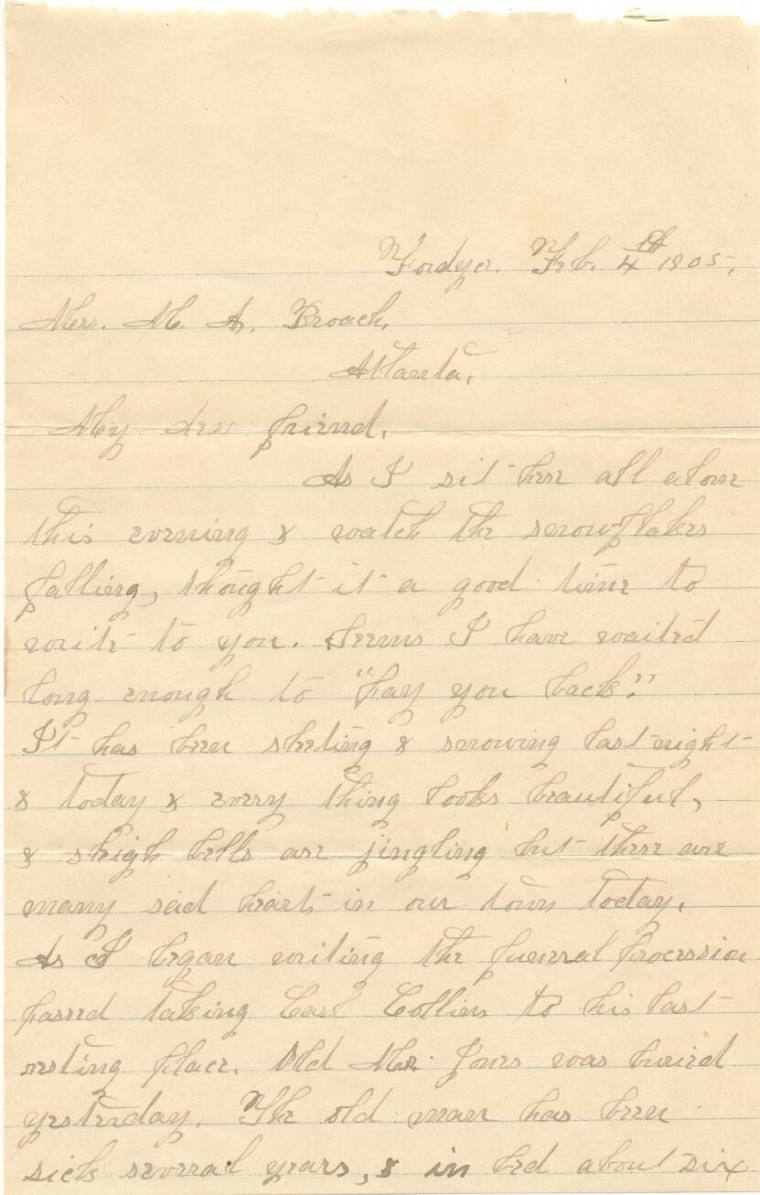 Fordyce. Feb. 4th 1905,
Mrs. M. A. Broach,
Atlanta,
My dear friend,
As I sit here all alone
this evening & watch the snowflakes
falling, thought it a good time to
write to you. Seems I have waited
long enough to "pay you back."
It has been sleeting & snowing last night
& today & every thing looks beautiful,
& sleigh bells are jingling but there are
many sad hearts in our town today.
As I began writing the funeral procession
passed taking Carl Collins to his last
resting place. Old Mr. Jones was buried
yesterday. The old man has been
sick several years, & in bed about six